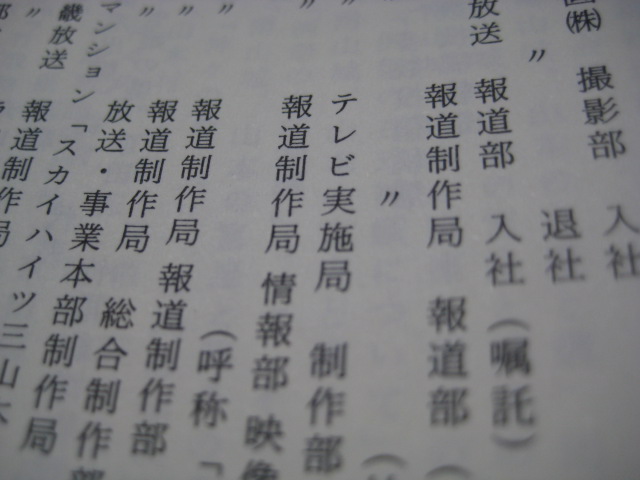 ㈱ 撮影部 入社
〃 退社
放送 報道部 入社（嘱託）
報道制作局 報道部（
〃
テレビ実施局 制作部（
〃 報道制作局 情報部 映像
〃 報道制作局（呼称「
〃 報道制作局 報道制作部
放送・事業本部制作局 総合制作部
マンション「スカイハイツ三山木
畿放送 報道制作局
〃